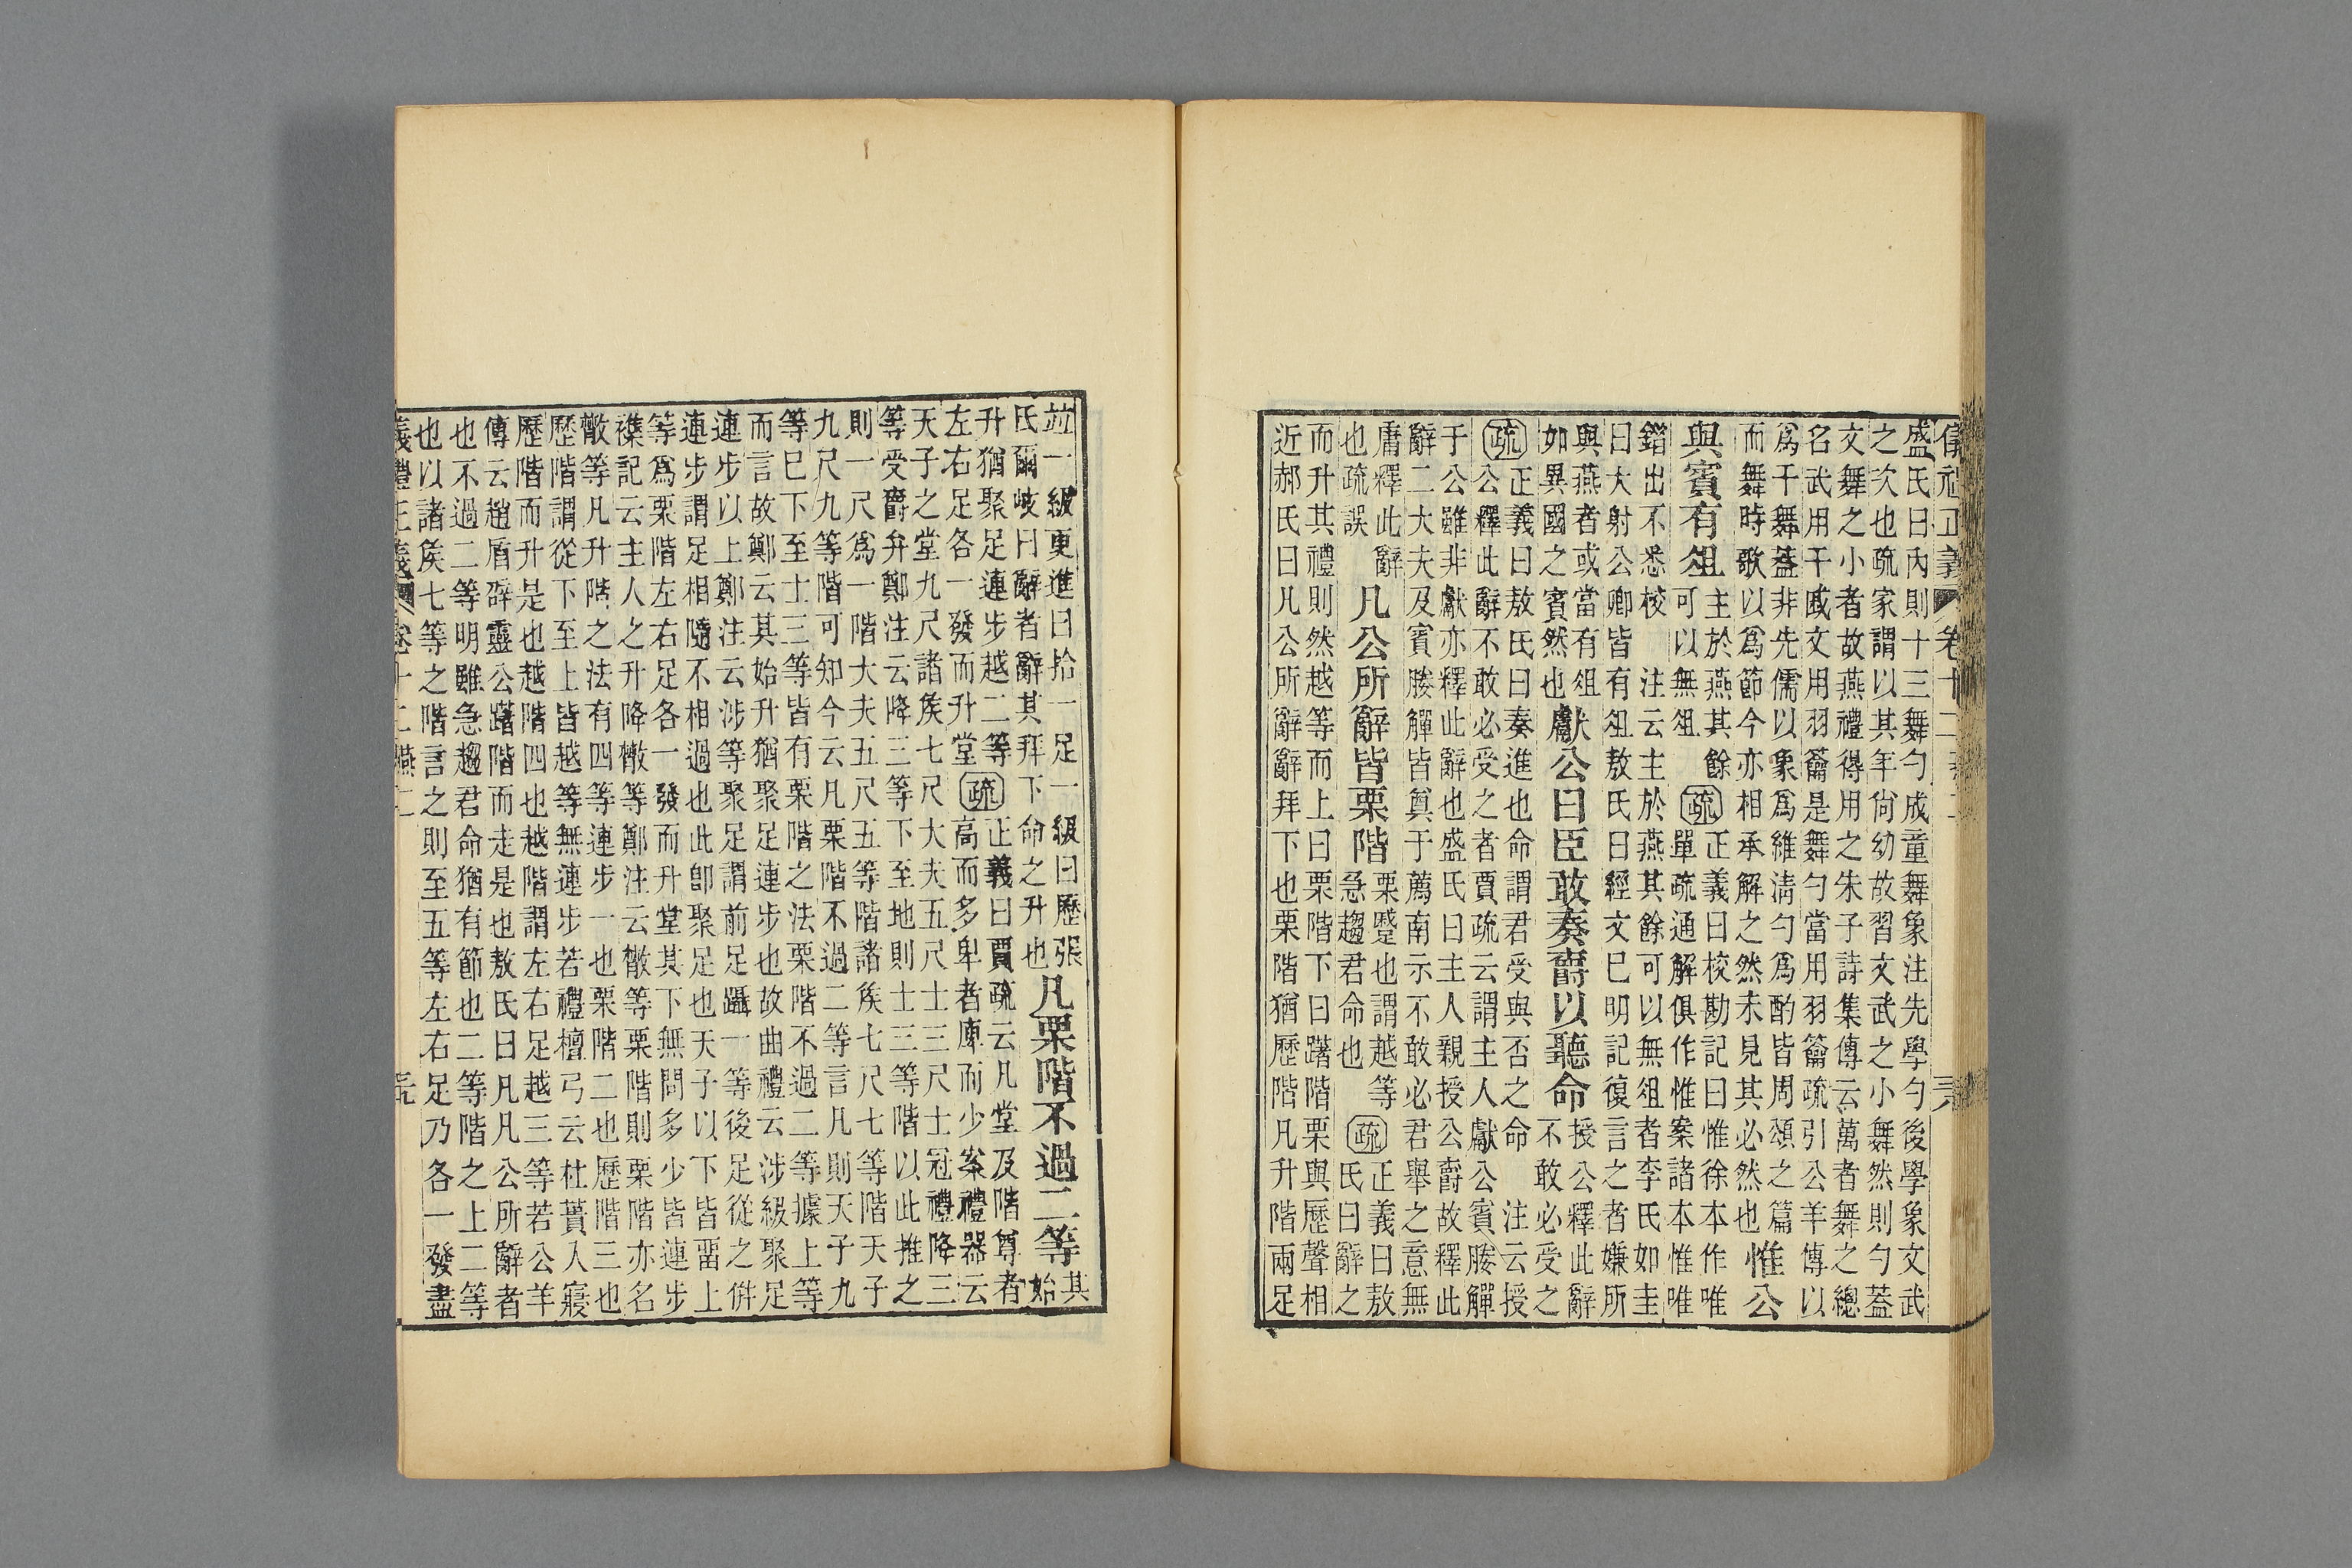 儀禮正義 卷十二 燕二 三八
盛氏曰內則十三舞勺成童舞象注先學勺後學象文武
之次也疏家謂以其年尙幼故習文武之小舞然則勺葢
文舞之小者故燕禮得用之朱子詩集傳云萬者舞之總
名武用干戚文用羽籥是舞勺當用羽籥疏引公羊傳以
爲干舞葢非先儒以象爲維淸勺爲酌皆周頌之篇
而舞時歌以爲節今亦相承解之然未見其必然也惟公
與賓有俎主於燕其餘可以無俎疏正義曰校勘記曰惟徐本作唯
單疏通解俱作惟案諸本惟唯
錯出不悉校 注云主於燕其餘可以無俎者李氏如圭
曰大射公卿皆有俎敖氏曰經文巳明記復言之者嫌所
與燕者或當有俎
如異國之賓然也獻公曰臣敢奏爵以聽命授公釋此辭
不敢必受之
疏正義曰敖氏曰奏進也命謂君受與否之命 注云授
公釋此辭不敢必受之者賈疏云謂主人獻公賓媵觶
于公雖非獻亦釋此辭也盛氏曰主人親授公爵故釋此
辭二大夫及賓媵觶皆奠于薦南示不敢必君舉之意無
庸釋此辭
也疏誤 凡公所辭皆栗階栗蹙也謂越等
急趨君命也疏正義曰敖
氏曰辭之
而升其禮則然越等而上曰栗階下曰躇階栗與歷聲相
近郝氏曰凡公所辭辭拜下也栗階猶歷階凡升階兩足
竝一級更進曰拾一足一級曰歷張
氏爾岐曰辭者辭其拜下命之升也凡栗階不過二等其始
升猶聚足連步越二等
左右足各一發而升堂疏正義曰賈疏云凡堂及階尊者
高而多卑者庳而少案禮器云
天子之堂九尺諸矦七尺大夫五尺士三尺士冠禮降三
等受爵弁鄭注云降三等下至地則士三等階以此推之
則一尺爲一階大夫五尺五等階諸矦七尺七等階天子
九尺九等階可知今云凡栗階不過二等言凡則天子九
等巳下至士三等皆有栗階之法栗階不過二等據上等
而言故鄭云其始升猶聚足連步也故曲禮云涉級聚足
連步以上鄭注云涉等聚足謂前足躡一等後足從之倂
連步謂足相隨不相過也此卽聚足也天子以下皆畱上
等爲栗階左右足各一發而升堂其下無問多少皆連步
襍記云主人之升降散等鄭注云散等栗階則栗階亦名
散等凡升階之法有四等連步一也栗階二也歷階三也
歷階謂從下至上皆越等無連步若禮檀弓云杜蕢入寢
歷階而升是也越階四也越階謂左右足越三等若公羊
傳云趙盾辟靈公躇階而走是也敖氏曰凡凡公所辭者
也不過二等明雖急趨君命猶有節也二等階之上二等
也以諸矦七等之階言之則至五等左右足乃各一發盡
義禮正義 卷十二 燕二 三九